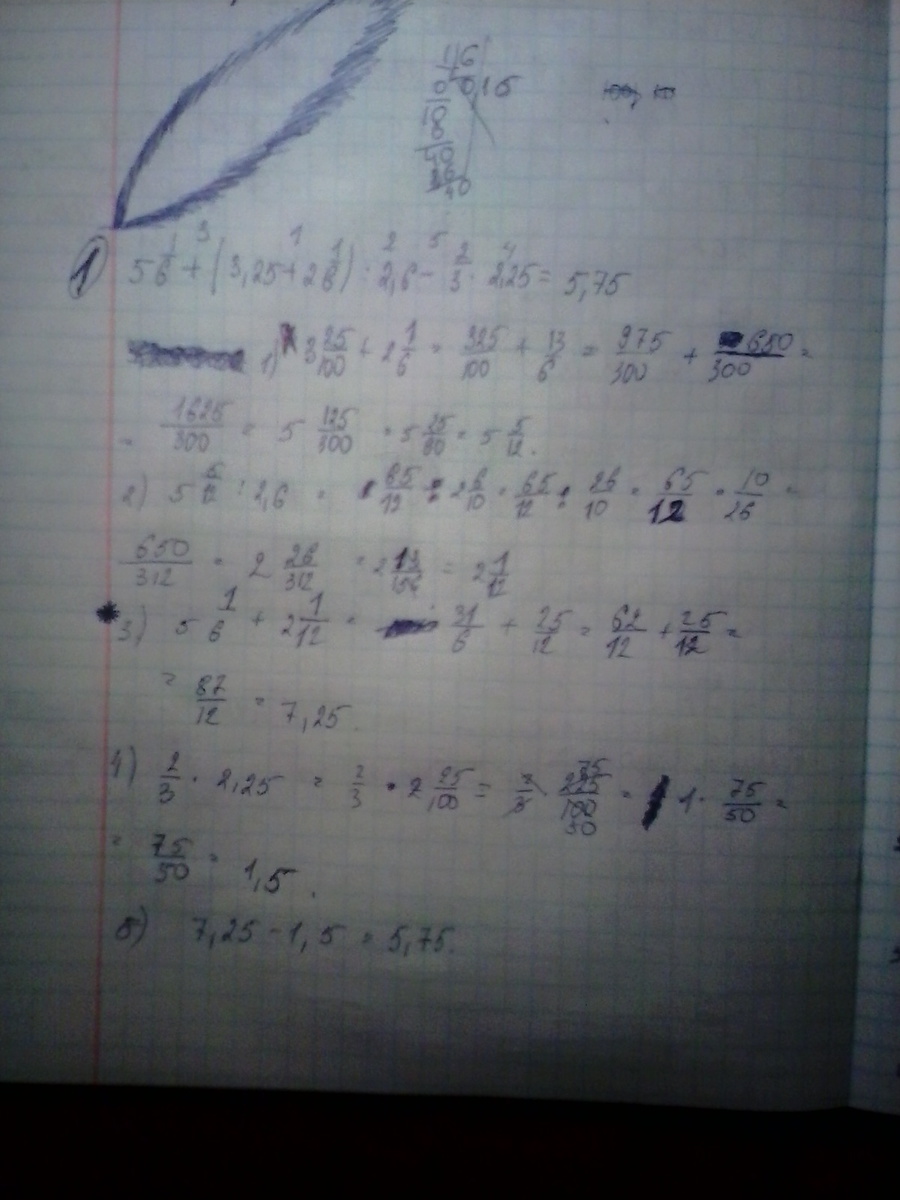 1,6
0 0,15
0
18
40
36
40
1 3 1 2 5 4
① 5 1/6 + (3,25 + 2 1/6) : 2,6 - 2/3 · 2,25 = 5,75
1) 3 25/100 + 2 1/6 = 325/100 + 13/6 = 975/300 + 650/300 =
= 1625/300 = 5 125/300 = 5 25/60 = 5 5/12.
2) 5 5/12 : 2,6 = 65/12 : 2 6/10 = 65/12 : 26/10 = 65/12 · 10/26 =
650/312 = 2 26/312 = 2 13/156 = 2 1/12
* 3) 5 1/6 + 2 1/12 = 31/6 + 25/12 = 62/12 + 25/12 =
= 87/12 = 7,25.
4) 2/3 · 2,25 = 2/3 · 2 25/100 = 2/3 · 225/100 75 50 = 1 · 75/50 =
= 75/50 = 1,5.
5) 7,25 - 1,5 = 5,75.